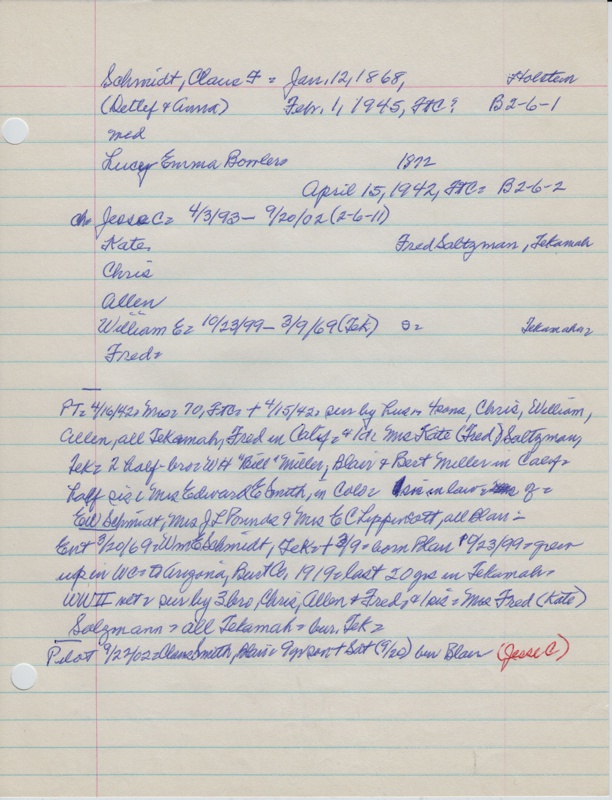 Schmidt, Claus F = Jan. 12, 1868, Holstein
(Detlef & Anna) Febr. 1, 1945, FtC? B2-6-1
med
Lucey Emma Bowlers 1872
April 15, 1942, FtC= B2-6-2
ch= Jesse C= 4/3/93 - 9/20/02 (2-6-11)
Kate, Fred Saltzman, Tekamah
Chris
Allen
William E= 10/23/99 - 3/9/69 (Tek) s= Tekamah=
Fred=
PT= 4/16/42= Mrs= 70, FtC= + 4/15/42= sur by hus= 4 sons, Chris, William,
Allen, all Tekamah, Fred in Calif= & 1 d= Mrs Kate (Fred) Saltzman,
Tek= 2 half-bro= WH "Bill" Miller, Blair & Bert Miller in Calif=
half sis= Mrs Edward E Smith, in Colo= sis in law =
Ed Schmidt, Mrs J L Pounds & Mrs E C Lippincott, all Blair=
Ent 3/20/69= Wm E Schmidt, Tek= + 3/9= born Blair 9/23/99= grew
up in WC= to Arizona, Burt Co, 1919= last 20 yrs in Tekamah=
WW II vet= sur by 3 bro, Chris, Allen & Fred= & 1 sis= Mrs Fred (Kate)
Salzmann = all Tekamah= bur. Tek=
Pilot 9/22/02= Claus Smith, Blair= 9 yr son + Sat (9/20) bur Blair (Jesse C.)